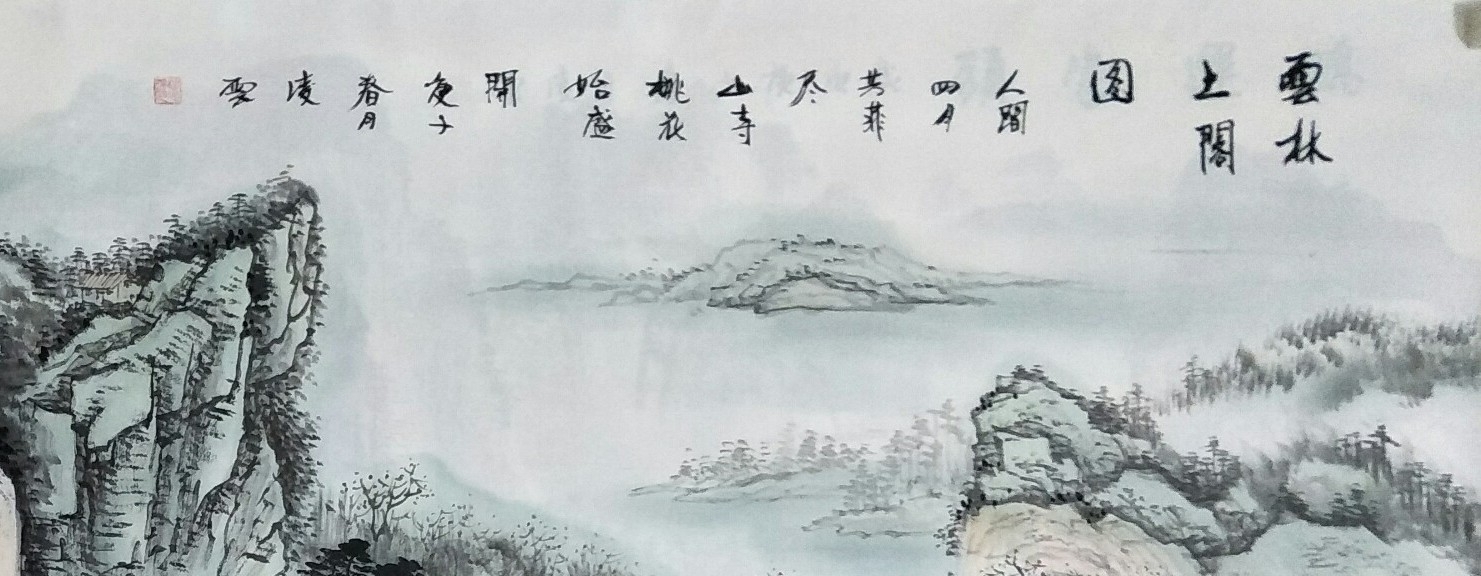 雲林
上閣
圖
人間
四月
芳菲
尽
山寺
桃花
始盛
開
庚子
春月
凌
雲